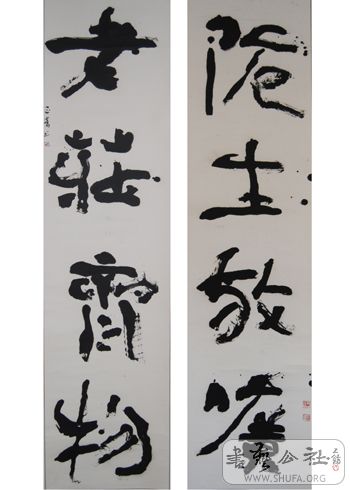 阮生放曠
老莊齊物
書藝公社
WWW.SHUFA.ORG